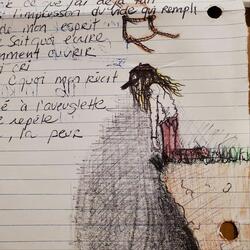 l'impression du vide qui rempli
de mon esprit
sait quoi écrire
comment ouvrir
cri
quoi mon récit
à l'aveuglette
répète
la peur